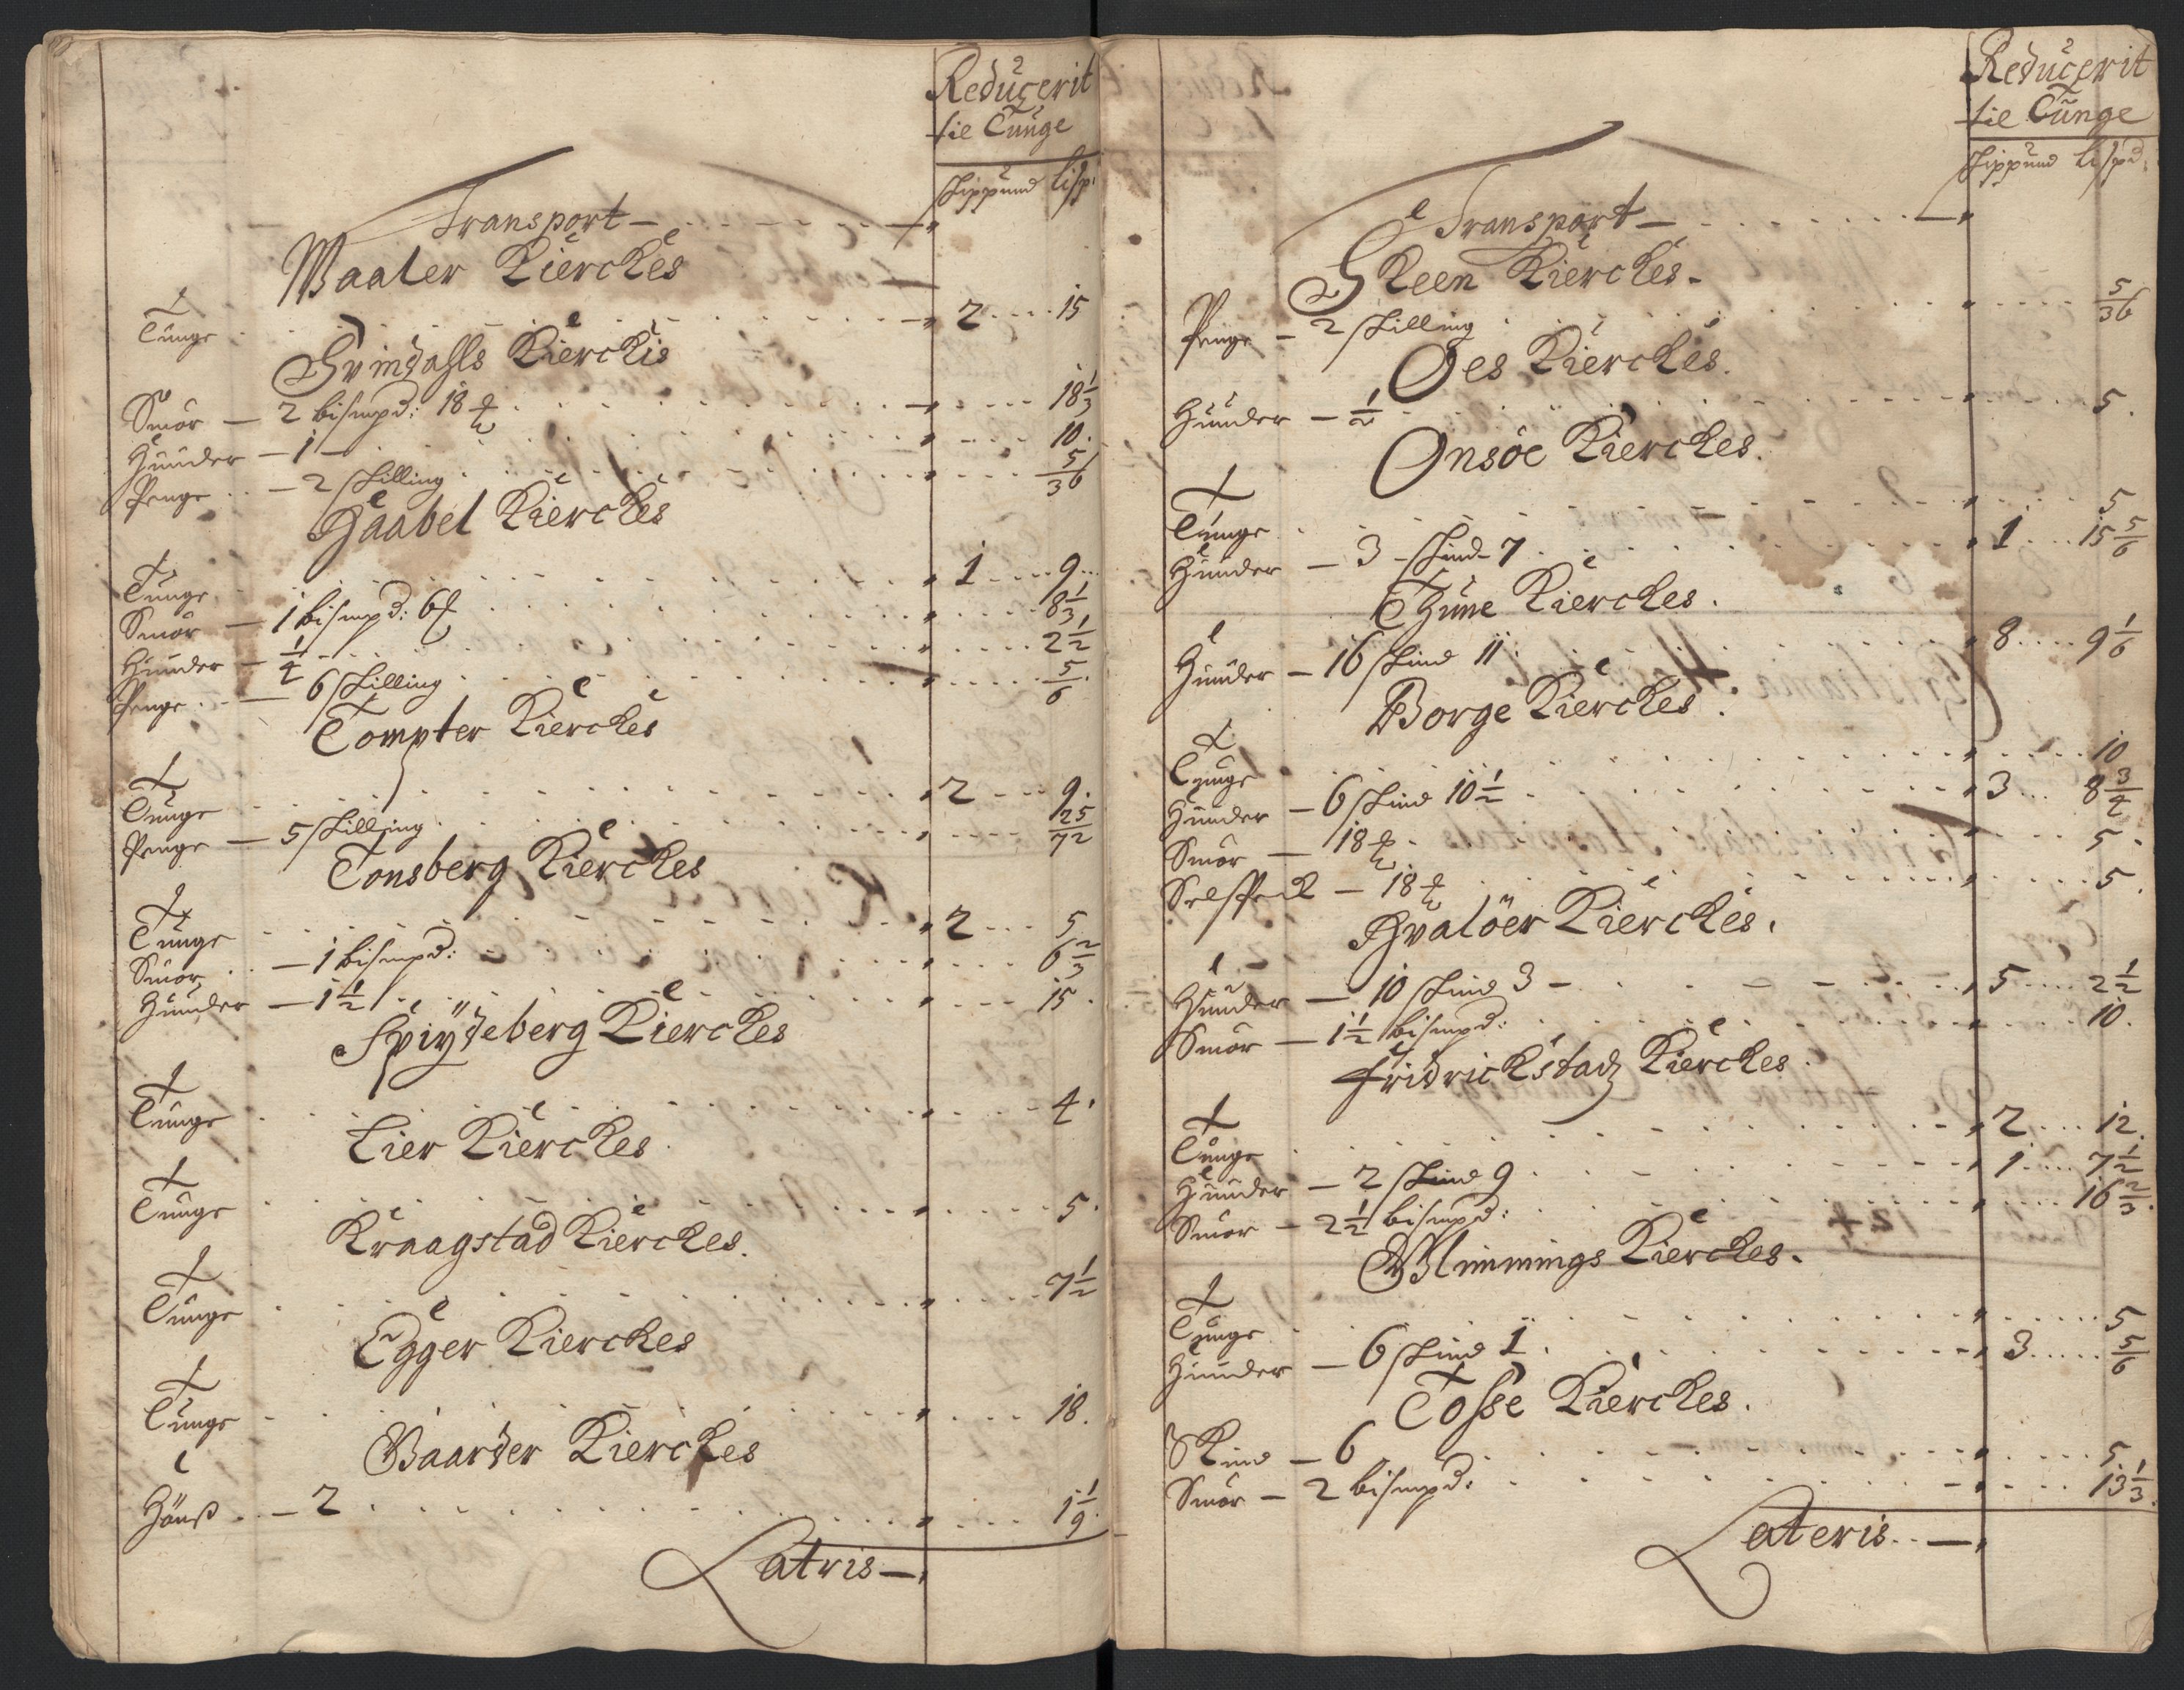 Reducerit
tie Tunge
skippund lisp:
Transport —
Waaler Kierckes
Tunge 2 15
Svindahls Kierckis
Smör — 2 bismpd: 18 ℔ 18 1/3
Huuder — 1 — 10.
Penge — 2 skilling 5/36
Haabel Kierckes
Tunge 1 9
Smör — 1 bismpd: 6 ℔ 8 1/3
Huuder — 1/4 2 1/2
Penge — 6 skilling 5/6
Tompter Kierckes
Tunge 2 9.
Penge — 5 skilling 25/72
Tonsberg Kierckes
Tunge 2 5
Smör — 1 bismpd: 6 2/3
Huuder — 1 1/2 15.
Spÿdeberg Kierckes
Tunge 4.
Lier Kierckes
Tunge 5.
Kraagstad Kierckes.
Tunge 7 1/2
Egger Kierckes
Tunge 18.
Baarder Kierckes
Hönß — 2 1 1/9.
Latris —
Reducerit
tie Tunge
skippund lispd:
Transport —
Skeen Kierckes.
Penge — 2 skilling 5/36
Oes Kierckes.
Huuder — 1/2 5.
Onsöe Kierckes.
Tunge 5
Huuder — 3 skind 7 1 15 5/6
Thune Kierckes.
Huuder — 16 skind 11 8 9 1/6
Borge Kierckes.
Tunge 10
Huuder — 6 skind 10 1/2 3 8 3/4
Smör — 18 ℔ 5.
Selspeck — 18 ℔ 5.
Hvalöer Kierckes.
Huuder — 10 skind 3 — 5 2 1/2
Smör — 1 1/2 bismpd: 10.
Fridrickstadz Kierckes.
Tunge 2 12.
Huuder — 2 skind 9 1 7 1/2
Smör — 2 1/2 bismpd: 16 2/3.
Glimmings Kierckes.
Tunge 5
Huuder — 6 skind 1 3 5/6
Tosse Kierckes.
Skind — 6 5.
Smör — 2 bismpd: 13 1/3.
Lateris —